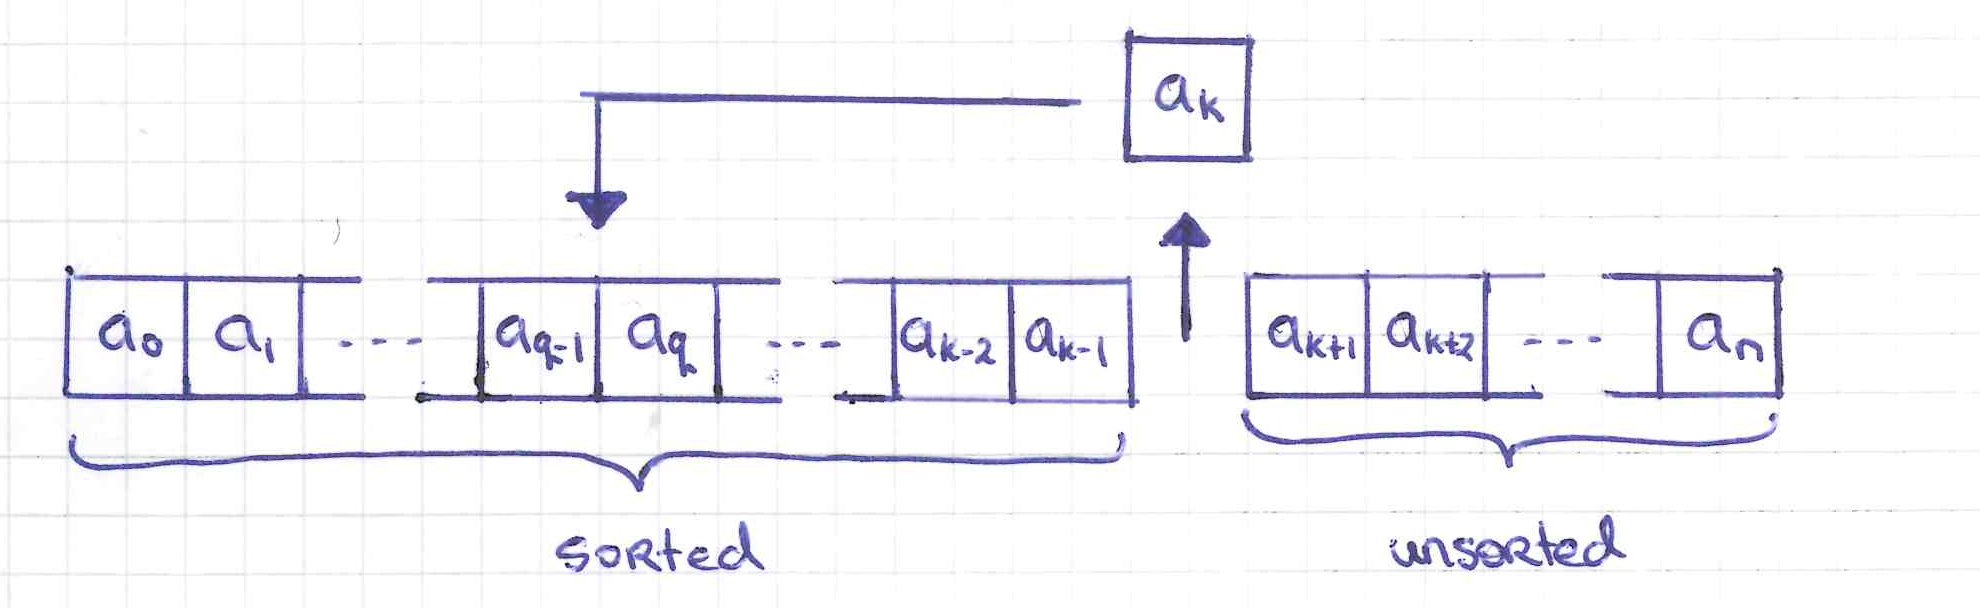 aₖ
a₀ a₁ ---- a_q-1 a_q ---- aₖ₋₂ aₖ₋₁ aₖ₊₁ aₖ₊₂ ---- aₙ
sorted unsorted